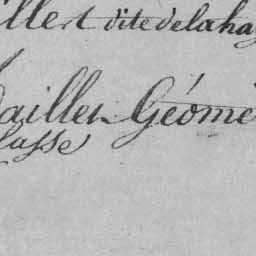 illert dite delaha
ailler Géomè
lasse